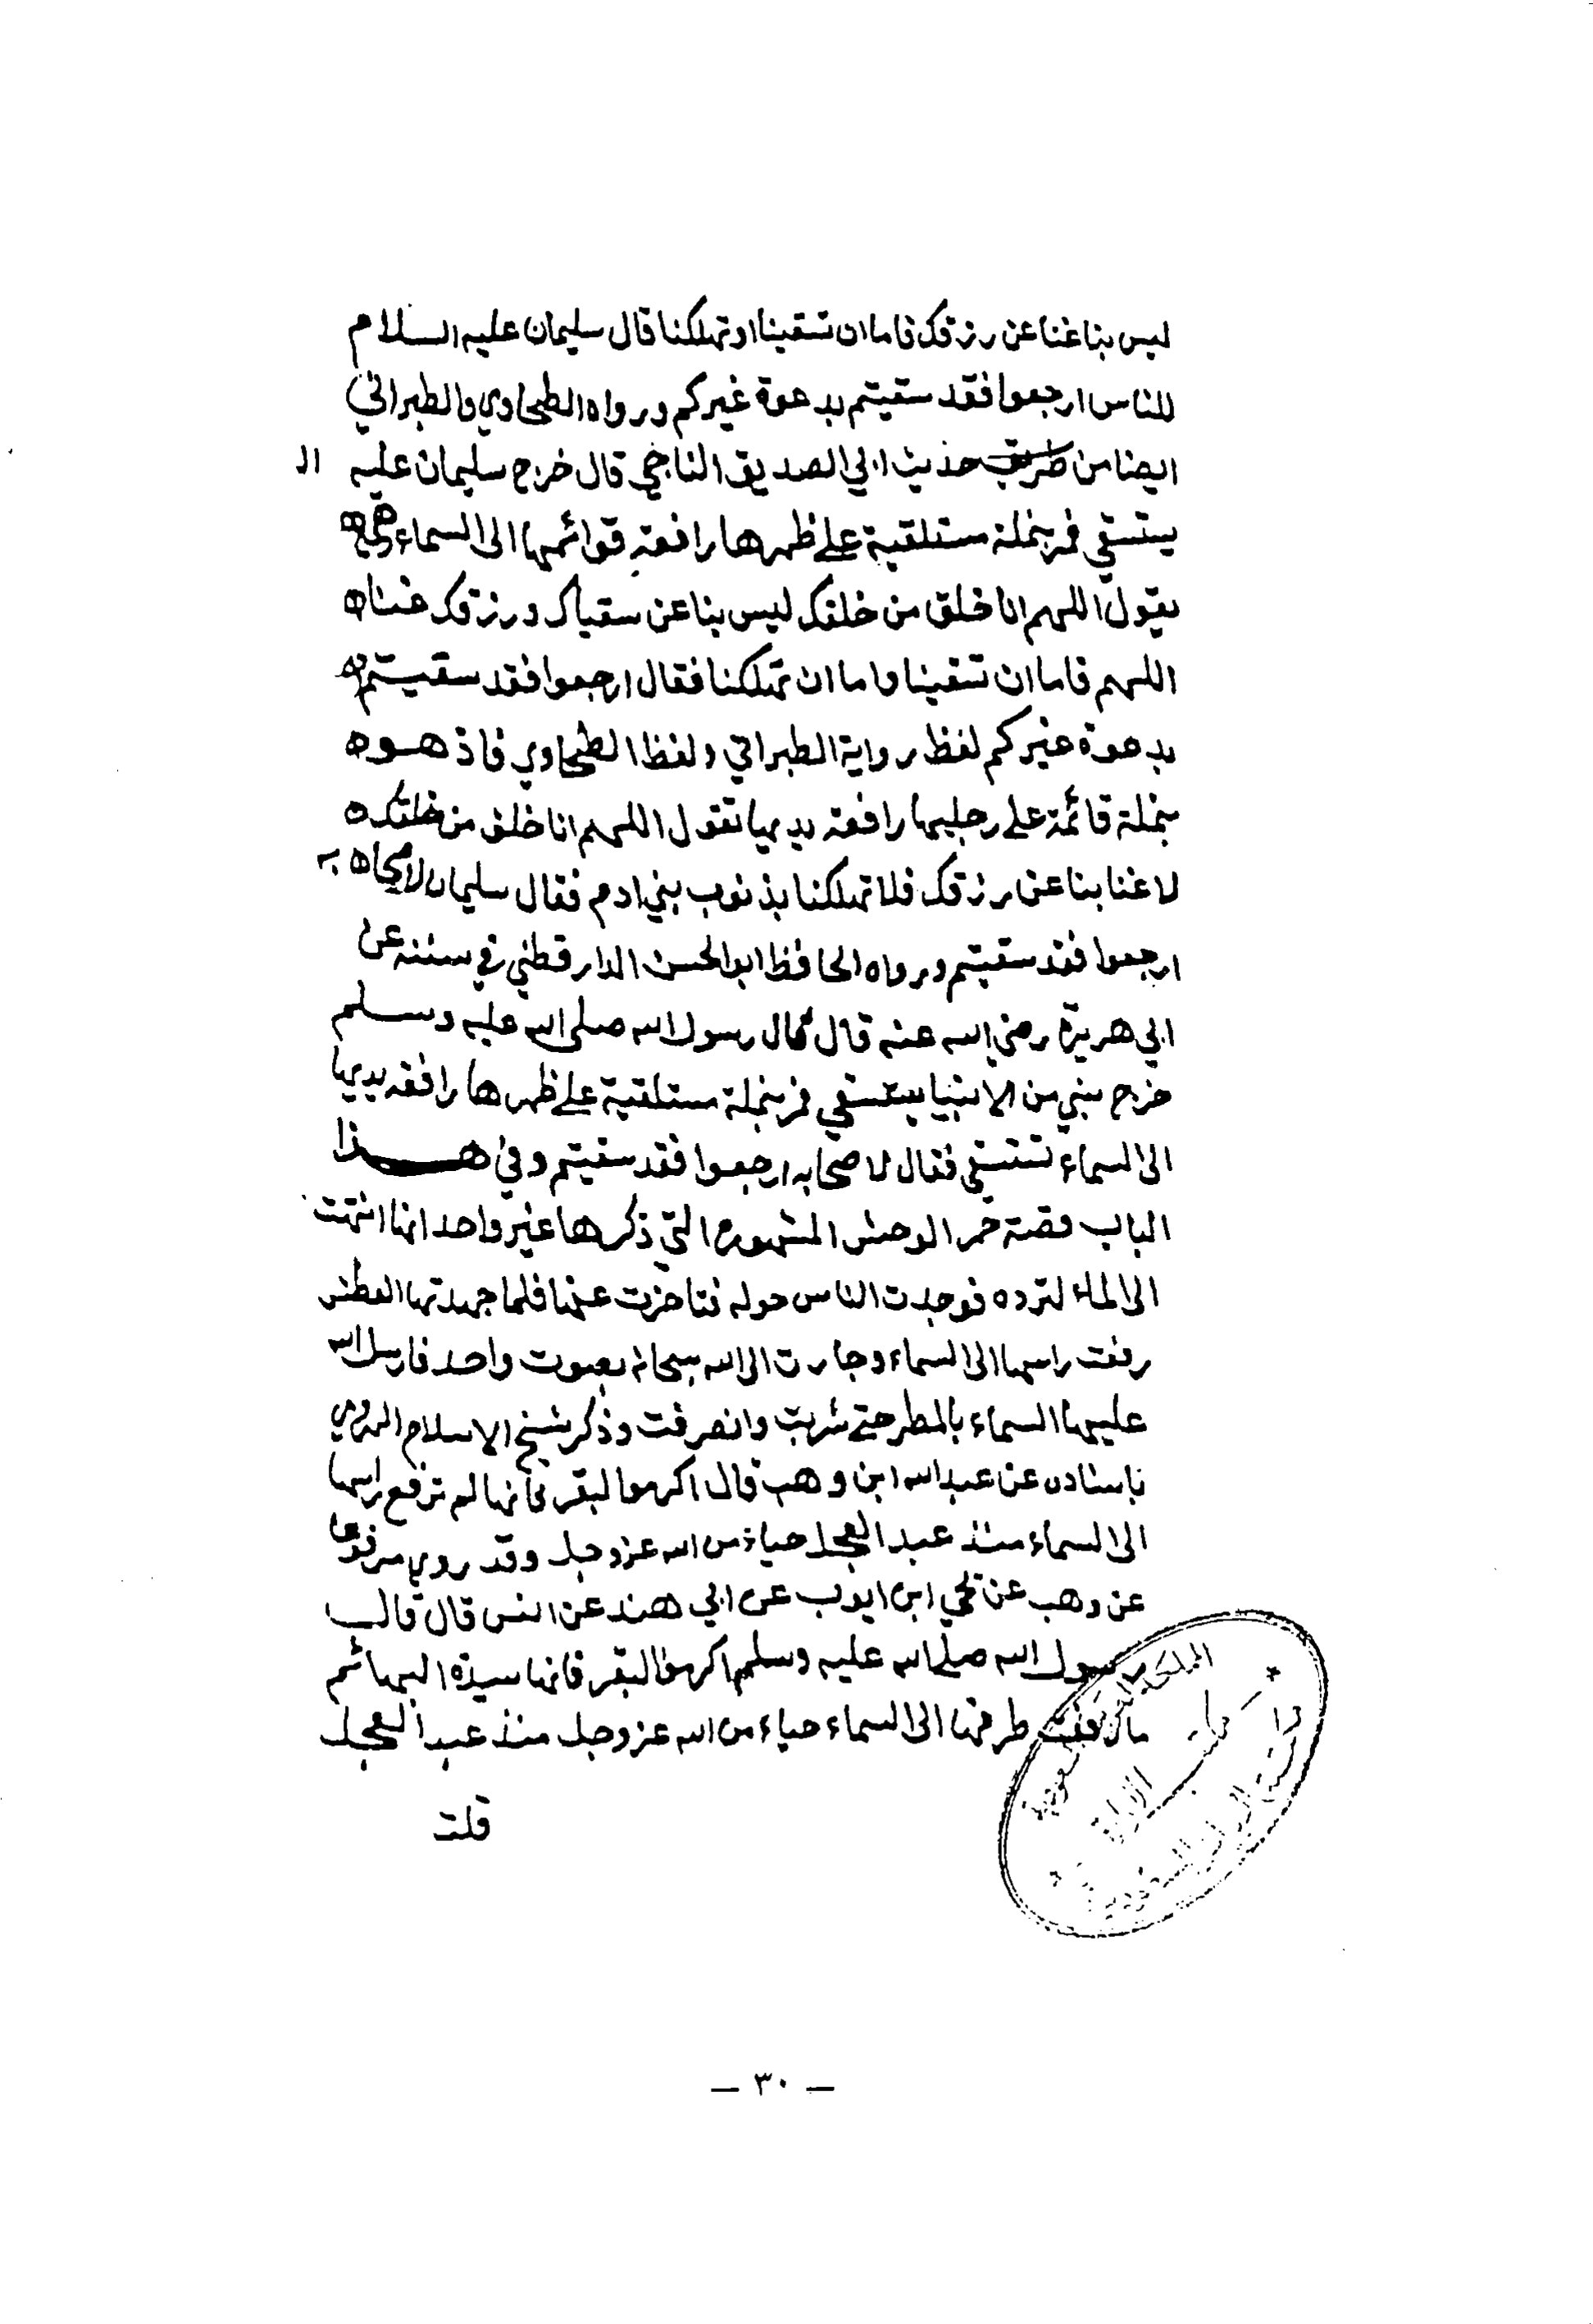 ليس بنا غنا عن رزقك فاما ان تسقينا او تهلكنا قال سليمان عليه السلام
للناس ارجعوا فقد سقيتم بدعوة غيركم ورواه الطحاوي والطبراني
ايضا من حديث ابي الصديق الناجي قال خرج سليمان عليه ال
يستسقي فمر بنملة مستلقية على ظهرها رافعة قوائمها الى السماء وهي
يقول اللهم انا خلق من خلقك ليس بنا عن سقياك ورزقك غنا
اللهم فاما ان تسقينا واما ان تهلكنا فقال ارجعوا فقد سقيتم
بدعوة غيركم لفظ رواية الطبراني ولفظ الطحاوي فاذ هو
بنملة قائمة على رجليها رافعة يديها تقول اللهم انا خلق من خلقك
لا غنا بنا عن رزقك فلا تهلكنا بذنوب بني ادم فقال سليمان لاصحابه
ارجعوا فقد سقيتم ورواه الحافظ ابو الحسن الدارقطني في سننه عن
ابي هريرة رضي الله عنه قال قال رسول الله صلى الله عليه وسلم
خرج نبي من الانبيا يستسقي فمر بنملة مستلقية على ظهرها رافعة يديها
الى السماء تستسقي فقال لاصحابه ارجعوا فقد سقيتم وفي هذا
الباب قصة حمر الوحش المشهورة التي ذكرها غير واحد انها انتهت
الى الماء لترده فوجدت الناس حوله فتاخرت عنها فلما جهدتها العطش
رفعت راسها الى السماء وجارت الى الله سبحانه بصوت واحد فارسل الله
عليها السماء بالمطر حتى شربت وانصرفت وذكر شيخ الاسلام الهروي
باسناده عن عبد الله ابن وهب قال اكرموا البقر فانها لم ترفع راسها
الى السماء منذ عبد العجل حياء من الله عز وجل وقد روي مرفوعا
عن وهب عن يحي ابن ايوب عن ابي هند عن انس قال قال
رسول الله صلى الله عليه وسلم اكرموا البقر فانها سيدة البهائم
ما رفعت طرفها الى السماء حياء من الله عز وجل منذ عبد العجل
قلت
المملكة
— ٣٠ —